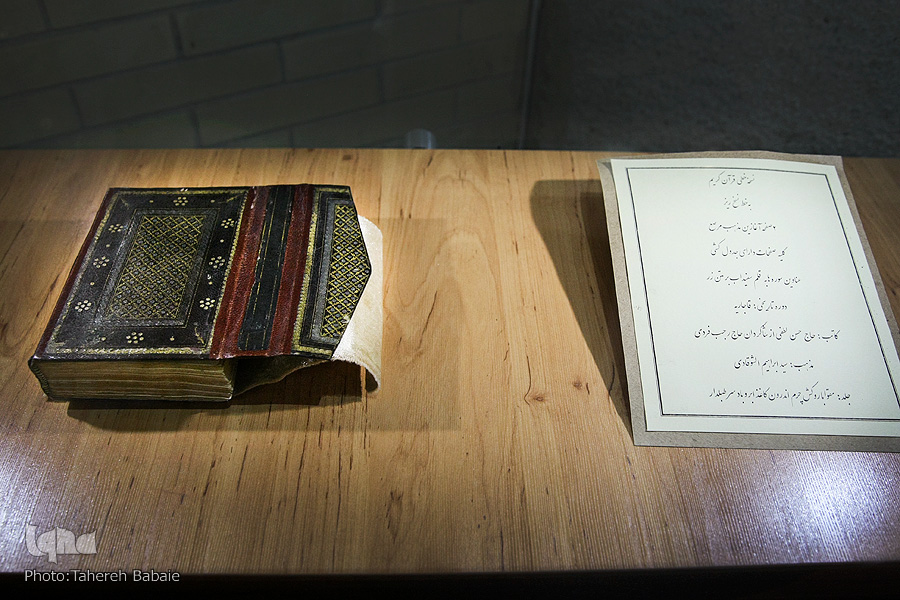 نسخه خطی قرآن کریم
به خط نسخ ریز
دو صفحه آغازین مذهب مرصع
کلیه صفحات دارای جدول کشی
عناوین سوره ها به قلم سفیداب بر متن زر
دوره تاریخی: قاجاریه
کاتب: حاج حسن لطفی از شاگردان حاج رجب فردی
مذهب: سید ابراهیم
جلد: مقوا با روکش چرم اندرون کاغذ ابر و باد سر طبلدار
iqna
Photo: Tahereh Babaie